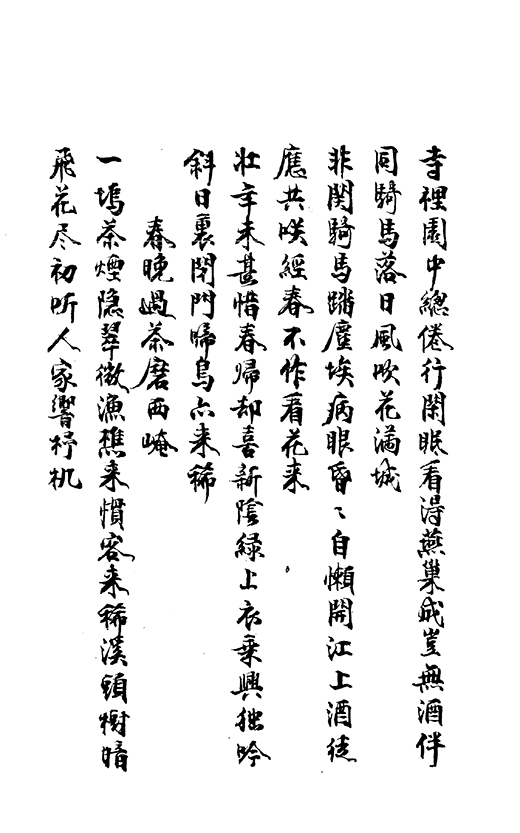 寺裡園中總倦行閑眠看得燕巢成豈無酒伴
同騎馬落日風吹花滿城
非関騎馬踏塵埃病眼昏〻自懶開江上酒徒
應共咲經春不作看花来
壮年未甚惜春帰却喜新陰緑上衣乗興独吟
斜日裏閉門啼鳥亦来稀
春晚過茶磨西崦
一塢茶煙隐翠微漁樵来慣客来稀溪頭樹暗
飛花尽初听人家響杼机